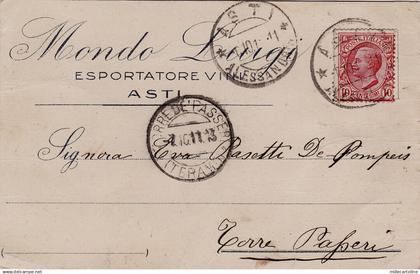 Mondo Luigi
ESPORTATORE VINI
ASTI
ASTI
ALESSANDRIA
10 10
TORRE DE PASSERI
(TERAMO)
Signora Eva Pasetti De Pompeis
Torre Passeri
© www.millecartoline.com